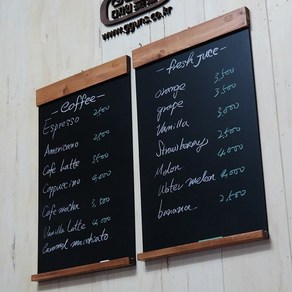 www.gguns.co.kr
- coffee -
Espresso 2,500
Americano 2,500
Cafe Latte 3,500
Cappuccino 4,000
Cafe mocha 3,500
Vanilla Latte 4,000
Caramel macchiato
- fresh juce -
orange 3,500
grape 3,500
Vanilla 3,000
Strawberry
Melon
Water melon
banana 2,500